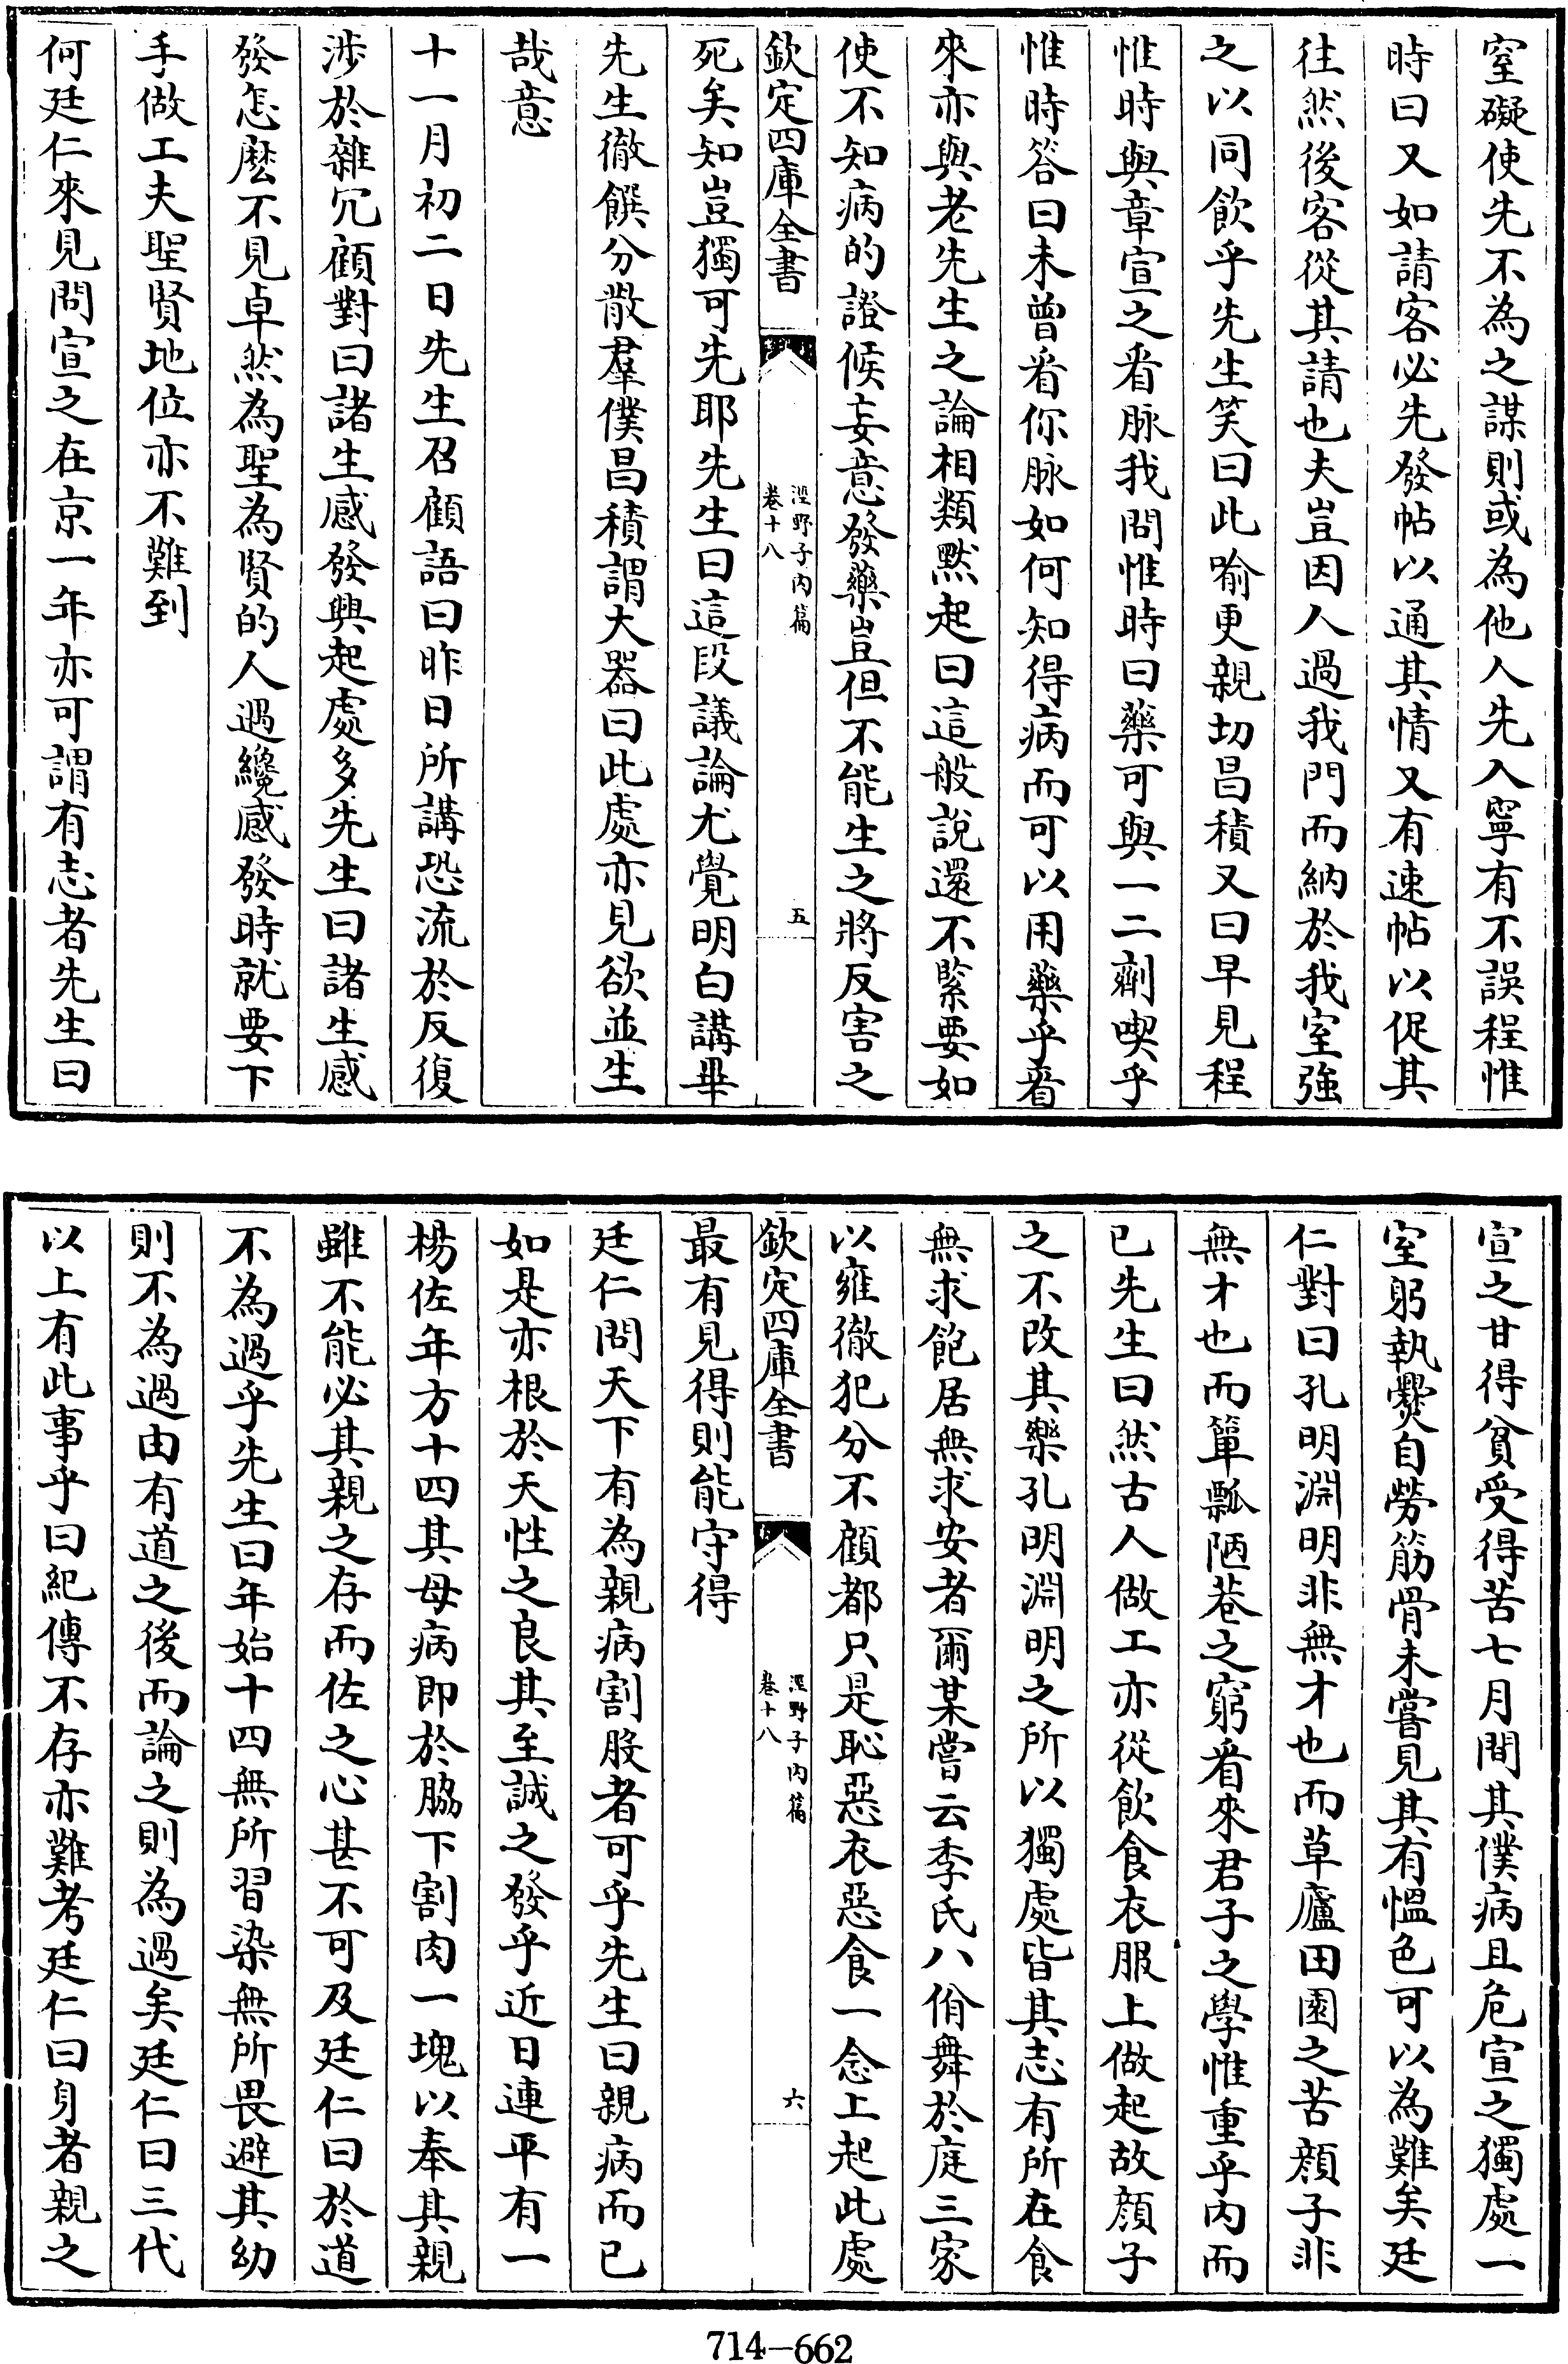 窒礙使先不為之謀則或為他人先入寧有不誤程惟
時曰又如請客必先發帖以通其情又有速帖以促其
往然後客從其請也夫豈因人過我門而納於我室強
之以同飲乎先生笑曰此喻更親切昌積又曰早見程
惟時與章宣之看脉我問惟時曰藥可與一二劑喫乎
惟時答曰未曾看你脉如何知得病而可以用藥乎看
來亦與老先生之論相類默起曰這般說還不緊要如
使不知病的證候妄意發藥豈但不能生之將反害之
欽定四庫全書
涇野子內篇
卷十八
五
死矣知豈獨可先耶先生曰這段議論尤覺明白講畢
先生徹饌分散羣僕昌積謂大器曰此處亦見欲並生
哉意
十一月初二日先生召顧語曰昨日所講恐流於反復
涉於雜冗顧對曰諸生感發興起處多先生曰諸生感
發怎麽不見卓然為聖為賢的人過纔感發時就要下
手做工夫聖賢地位亦不難到
何廷仁來見問宣之在京一年亦可謂有志者先生曰
宣之甘得貧受得苦七月間其僕病且危宣之獨處一
室躬執爨自勞筋骨未嘗見其有愠色可以為難矣廷
仁對曰孔明淵明非無才也而草廬田園之苦顔子非
無才也而簞瓢陋巷之窮看來君子之學惟重乎內而
已先生曰然古人做工亦從飲食衣服上做起故顔子
之不改其樂孔明淵明之所以獨處皆其志有所在食
無求飽居無求安者爾某嘗云季氏八佾舞於庭三家
以雍徹犯分不顧都只是恥惡衣惡食一念上起此處
欽定四庫全書
涇野子內篇
卷十八
六
最有見得則能守得
廷仁問天下有為親病割股者可乎先生曰親病而已
如是亦根於天性之良其至誠之發乎近日連平有一
楊佐年方十四其母病即於脇下割肉一塊以奉其親
雖不能必其親之存而佐之心甚不可及廷仁曰於道
不為過乎先生曰年始十四無所習染無所畏避其幼
則不為過由有道之後而論之則為過矣廷仁曰三代
以上有此事乎曰紀傳不存亦難考廷仁曰身者親之
714—662